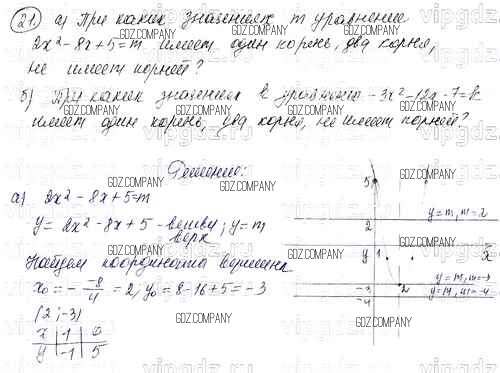 21. а) При каких значениях m уравнение
2x² - 8x + 5 = m имеет один корень, два корня,
не имеет корней?
б) При каких значениях k уравнение -3x² - 12x - 7 = k
имеет один корень, два корня, не имеет корней?
Решение:
а) 2x² - 8x + 5 = m
y = 2x² - 8x + 5 - ветви вверх; y = m
Найдем координаты вершины
x₀ = - -8/4 = 2, y₀ = 8 - 16 + 5 = -3
(2; -3)
x | 1 | 0
y | -1 | 5
5
y = m, m = 2
2
y 1 x
-3 2
y = m, m = -3
-4 y = m, m = -4
GDZ.COMPANY
vipgdz.ru